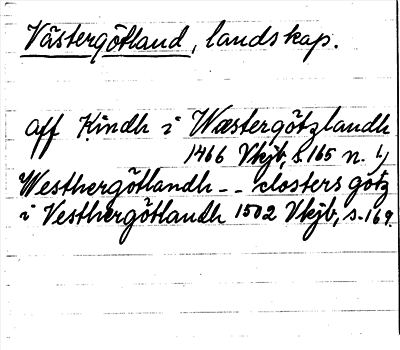 Västergötland, landskap.
aff Kindh i Wæstergötzlandh
1466 Vkjb, s. 165 n. 4)
Westhergötlandh - - closters götz
i Vesthergötlandh 1502 Vkjb, s. 169.